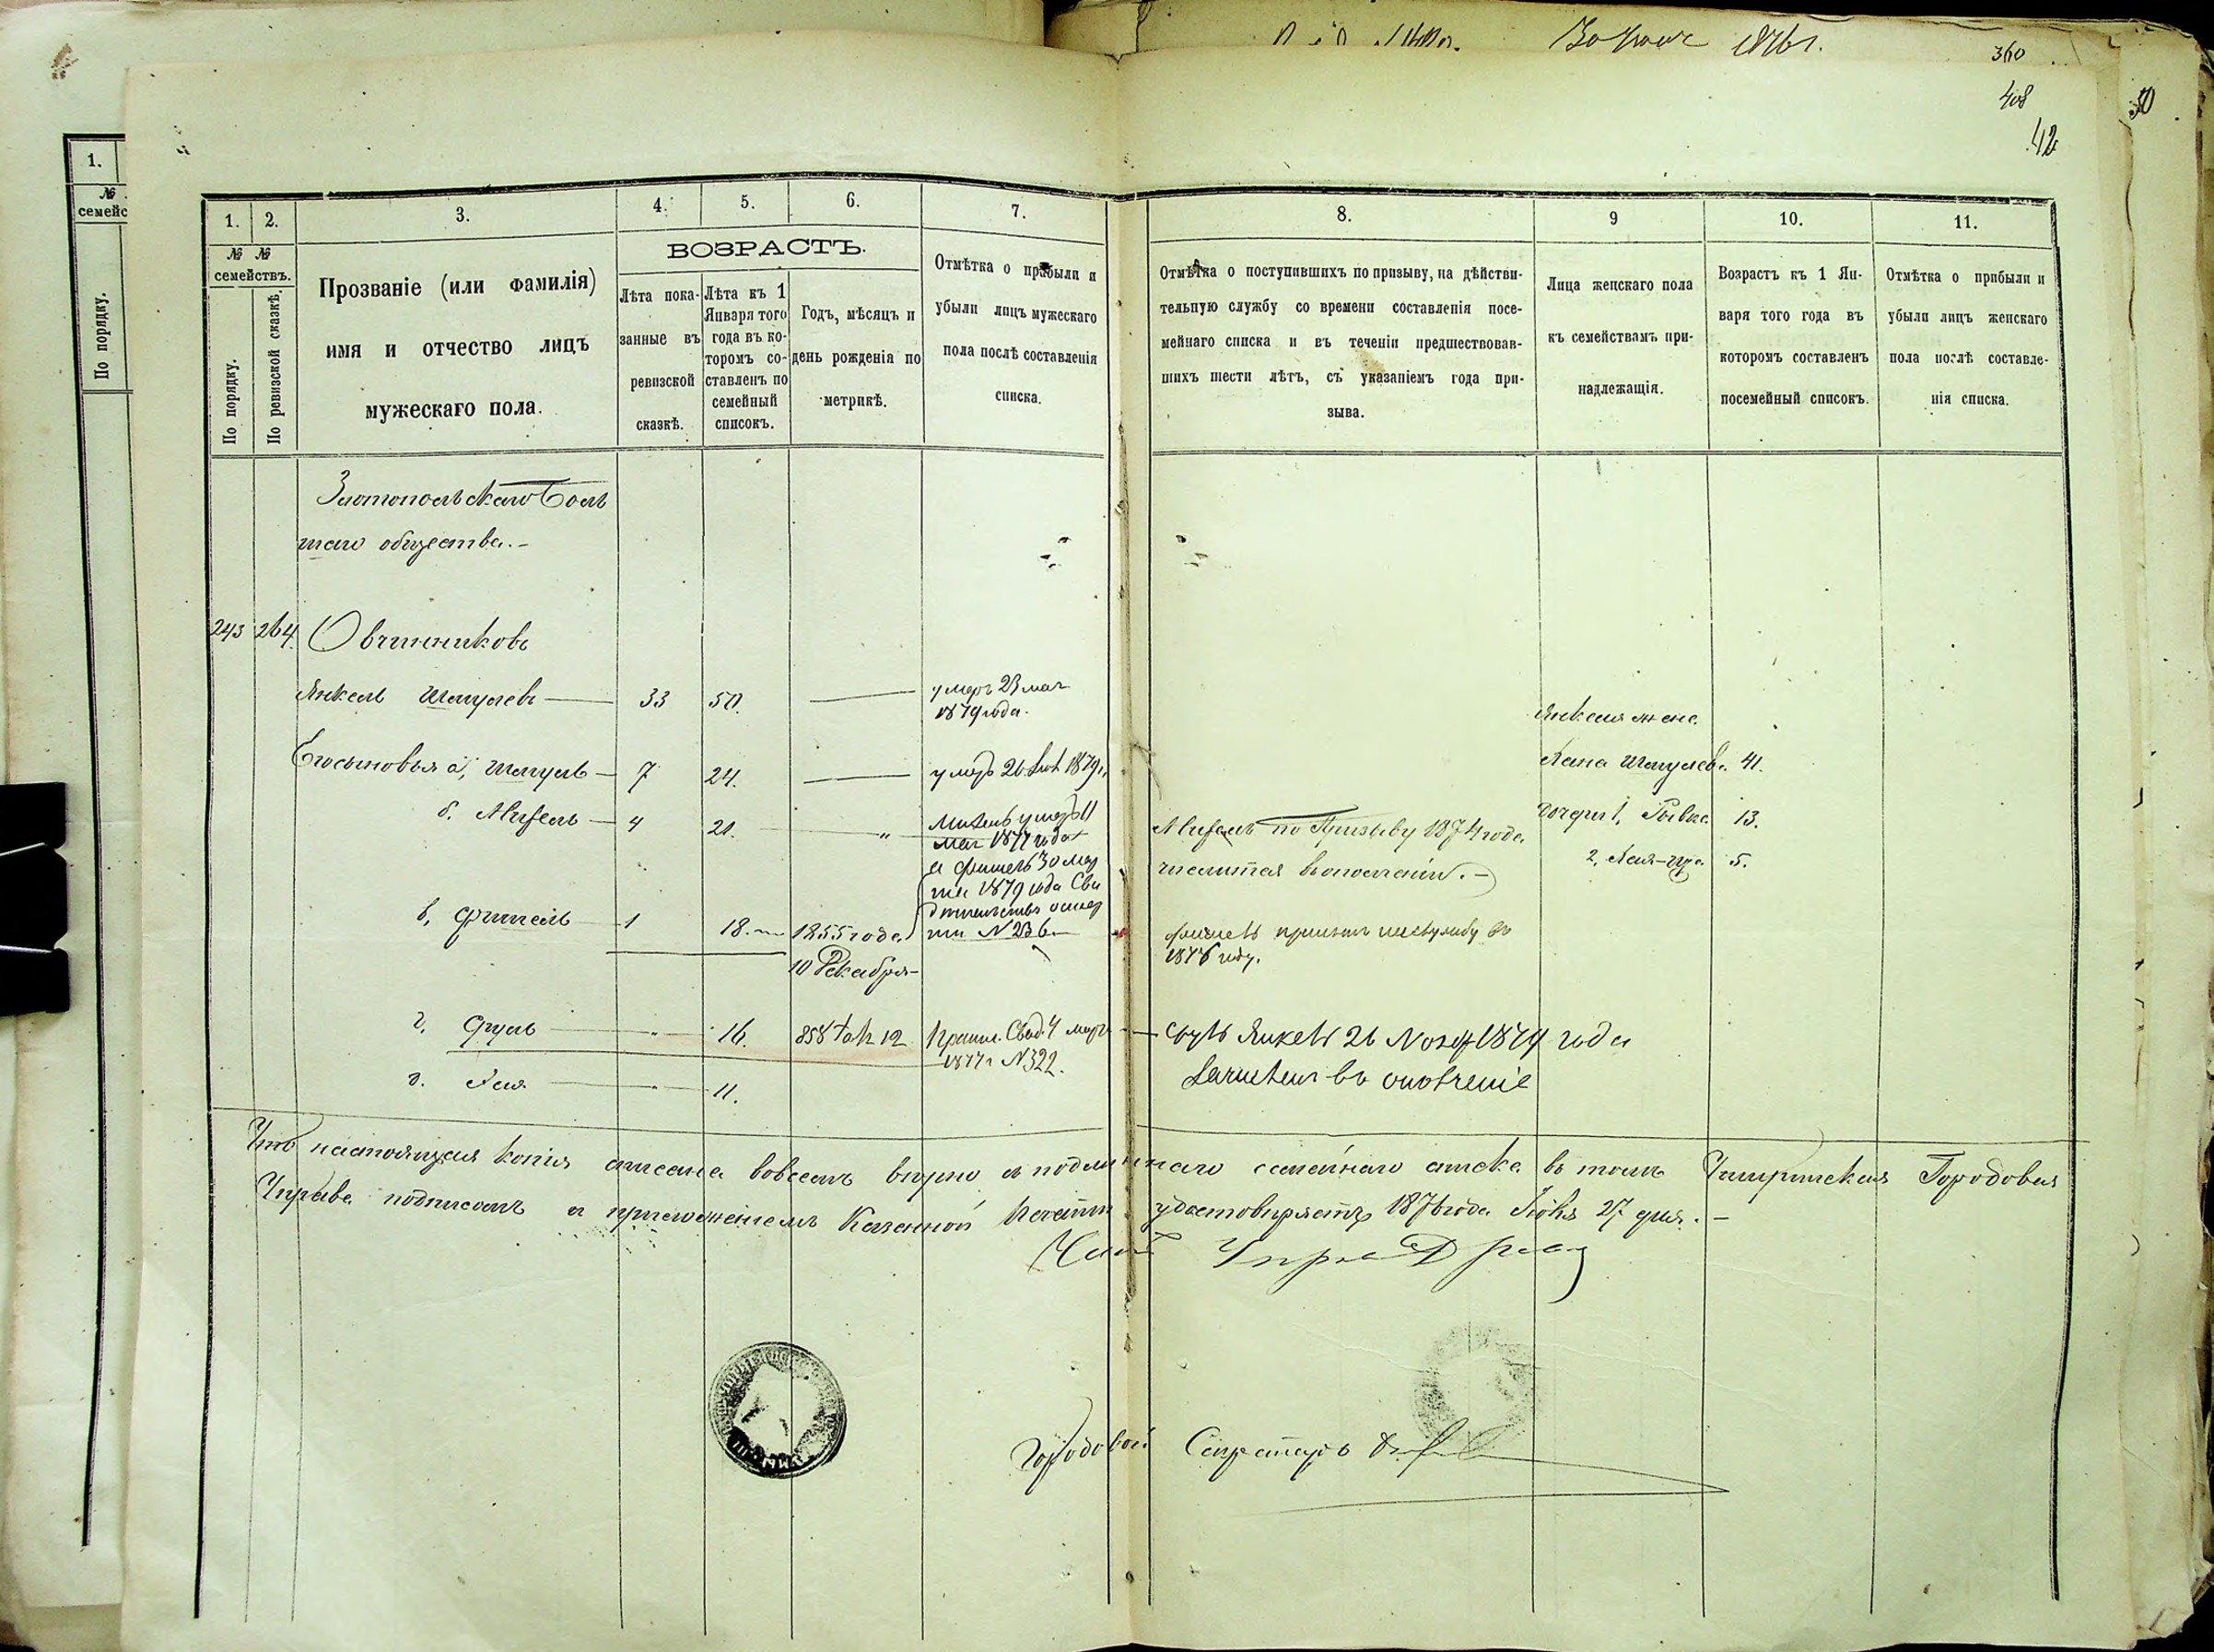 1876г.
360
408
42
50
1.
№
семейс
По порядку.
1. 2. 3. 4. 5. 6. 7. 8. 9 10. 11.
№ №
семействъ.
По порядку.
По ревизской сказкѣ.
Прозваніе (или фамилія)
имя и отчество лицъ
мужескаго пола.
ВОЗРАСТЪ.
Лѣта пока-
занные въ
ревизской
сказкѣ.
Лѣта къ 1
Января того
года въ ко-
торомъ со-
ставленъ по
семейный
списокъ.
Годъ, мѣсяцъ и
день рожденія по
метрикѣ.
Отмѣтка о прибыли и
убыли лицъ мужескаго
пола послѣ составленія
списка.
Отмѣтка о поступившихъ по призыву, на дѣйстви-
тельную службу со времени составленія посе-
мейнаго списка и въ теченіи предшествовав-
шихъ шести лѣтъ, съ указаніемъ года при-
зыва.
Лица женскаго пола
къ семействамъ при-
надлежащія.
Возрастъ къ 1 Ян-
варя того года въ
которомъ составленъ
посемейный списокъ.
Отмѣтка о прибыли и
убыли лицъ женскаго
пола послѣ составле-
нія списка.
Златопольскаго
общества.-
243 264. Овчинниковъ
Янкель Шмулевъ 33 50. умеръ 23 мая
1879 года.
Янкеля жена
Хана Шмулев. 41.
Егосыновья а, Шмуль 7 24. умеръ 26 1879г.
б. Михель 4 21. " Михель умеръ 11
мая 1877 года
а Фишель 30 мар
та 1879 года Сви
дѣтельство о смер
ти № 236
Михель по Призыву 1874 года
числится въ ополченіи.-
дочери 1, Рывка 13.
2, 5.
в, Фишель 1 18. 1855 года
10 Декабря
Фишель принятъ на службу въ
1876 году.
г. Сруль " 16. 858 12 Припис. Свид. 4 марта
1877 г №322.
Сруль Янкель 26 Нояб 1879 года
зачисленъ въ ополченіе
д. " 11.
Что настоящая копія списана вовсемъ вѣрно съ подлиннаго семейнаго списка въ томъ Чигиринская Городовая
Управа подписомъ и приложеніемъ Казенной печати удостовѣряетъ 1876 года Юня 27 дня.-
Членъ Управы
Городовой Секретарь